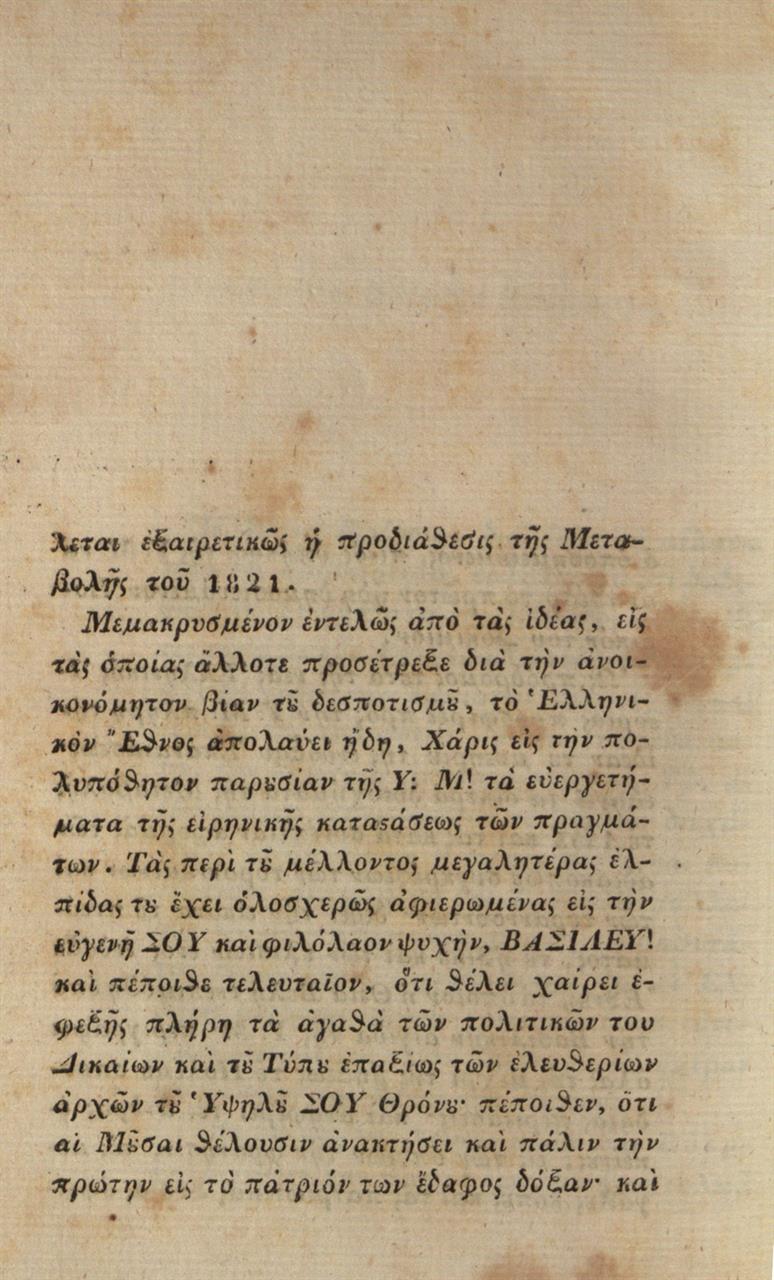 λεται ἐξαιρετικῶς ἡ προδιάθεσις τῆς Μετα-
βολῆς τοῦ 1821.
Μεμακρυσμένον ἐντελῶς ἀπὸ τὰς ἰδέας, εἰς
τὰς ὁποίας ἄλλοτε προσέτρεξε διὰ τὴν ἀνοι-
κονόμητον βίαν τȣ͂ δεσποτισμȣ͂, τὸ Ἑλληνι-
κὸν Ἔθνος ἀπολαύει ἤδη, Χάρις εἰς τὴν πο-
λυπόθητον παρȣσίαν τῆς Υ: Μ! τὰ εὐεργετή-
ματα τῆς εἰρηνικῆς καταϛάσεως τῶν πραγμά-
των. Τὰς περὶ τȣ͂ μέλλοντος μεγαλητέρας ἐλ-
πίδας τȣ ἔχει ὁλοσχερῶς ἀφιερωμένας εἰς τὴν
εὐγενῆ ΣΟΥ καὶ φιλόλαον ψυχὴν, ΒΑΣΙΛΕΥ!
καὶ πέποιθε τελευταῖον, ὅτι θέλει χαίρει ἐ-
φεξῆς πλήρη τὰ ἀγαθὰ τῶν πολιτικῶν του
Δικαίων καὶ τȣ͂ Τύπȣ ἐπαξίως τῶν ἐλευθερίων
ἀρχῶν τȣ͂ Ὑψηλȣ͂ ΣΟΥ Θρόνȣ· πέποιθεν, ὅτι
αἱ Μȣ͂σαι θέλουσιν ἀνακτήσει καὶ πάλιν τὴν
πρώτην εἰς τὸ πάτριόν των ἔδαφος δόξαν· καὶ